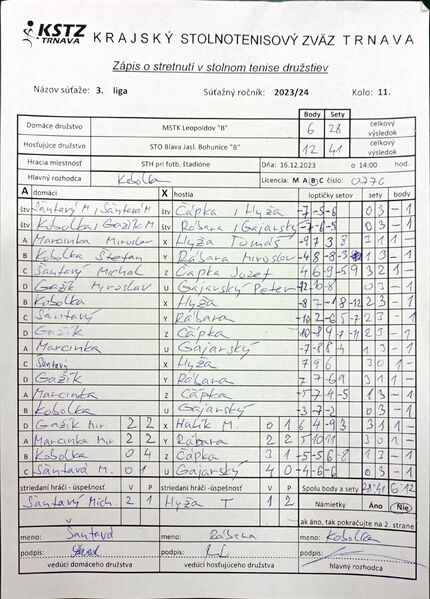 KSTZ
TRNAVA
KRAJSKÝ STOLNOTENISOVÝ ZVÄZ TRNAVA
Zápis o stretnutí v stolnom tenise družstiev
Názov súťaže: 3. liga Súťažný ročník: 2023/24 Kolo: 11.
Body Sety
Domáce družstvo MSTK Leopoldov "B" 6 28 celkový výsledok
Hosťujúce družstvo STO Blava Jasl. Bohunice "B" 12 41 celkový výsledok
Hracia miestnosť STH pri futb. štadióne Dňa: 16.12.2023 o 14:00 hod.
Hlavný rozhodca Kobolka Licencia: M A B C číslo: 0770
A domáci X hostia loptičky setov sety body
štv Šántavý M, Šántavá M štv Čápka, Hyža -7 -5 -6 0 3 - 1
štv Kobolka, Gažík M štv Rábara, Gajarský -7 -6 -5 0 3 - 1
A Marcinka Miroslav X Hyža Tomáš -9 7 3 8 3 1 1 -
B Kobolka Štefan Y Rábara Miroslav -4 8 -8 -3 1 3 - 1
C Šántavý Michal Z Čápka Jozef 4 6 -9 -5 9 3 2 1 -
D Gažík Miroslav U Gajarský Peter -12 -10 -8 0 3 - 1
B Kobolka X Hyža -8 7 -1 8 -12 2 3 - 1
C Šántavý Y Rábara -10 2 -6 5 -7 2 3 - 1
D Gažík Z Čápka 10 -8 9 -7 -11 2 3 - 1
A Marcinka U Gajarský -7 -8 8 -4 1 3 - 1
C Šántavý X Hyža 7 9 6 3 0 1 -
D Gažík Y Rábara 7 7 -6 9 3 1 1 -
A Marcinka Z Čápka -5 7 -4 -5 1 3 - 1
B Kobolka U Gajarský -3 -7 -2 0 3 - 1
D Gažík Mir. 2 2 X Halík M. 0 1 6 4 -9 3 3 1 1 -
A Marcinka Mir. 2 2 Y Rábara 2 2 5 10 11 3 0 1 -
B Kobolka 0 4 Z Čápka 3 1 -5 -5 6 -8 1 3 - 1
C Šántavá M. 0 1 U Gajarský 4 0 -4 -6 -6 0 3 - 1
striedaní hráči - úspešnosť V P striedaní hráči - úspešnosť V P Spolu body a sety 28:41 6:12
Šántavý Mich 2 1 Hyža T 1 2 Námietky Áno Nie
ak áno, tak pokračujte na 2. strane
meno: Šántavá meno: Rábara meno: Kobolka
podpis: podpis: podpis:
vedúci domáceho družstva vedúci hosťujúceho družstva hlavný rozhodca